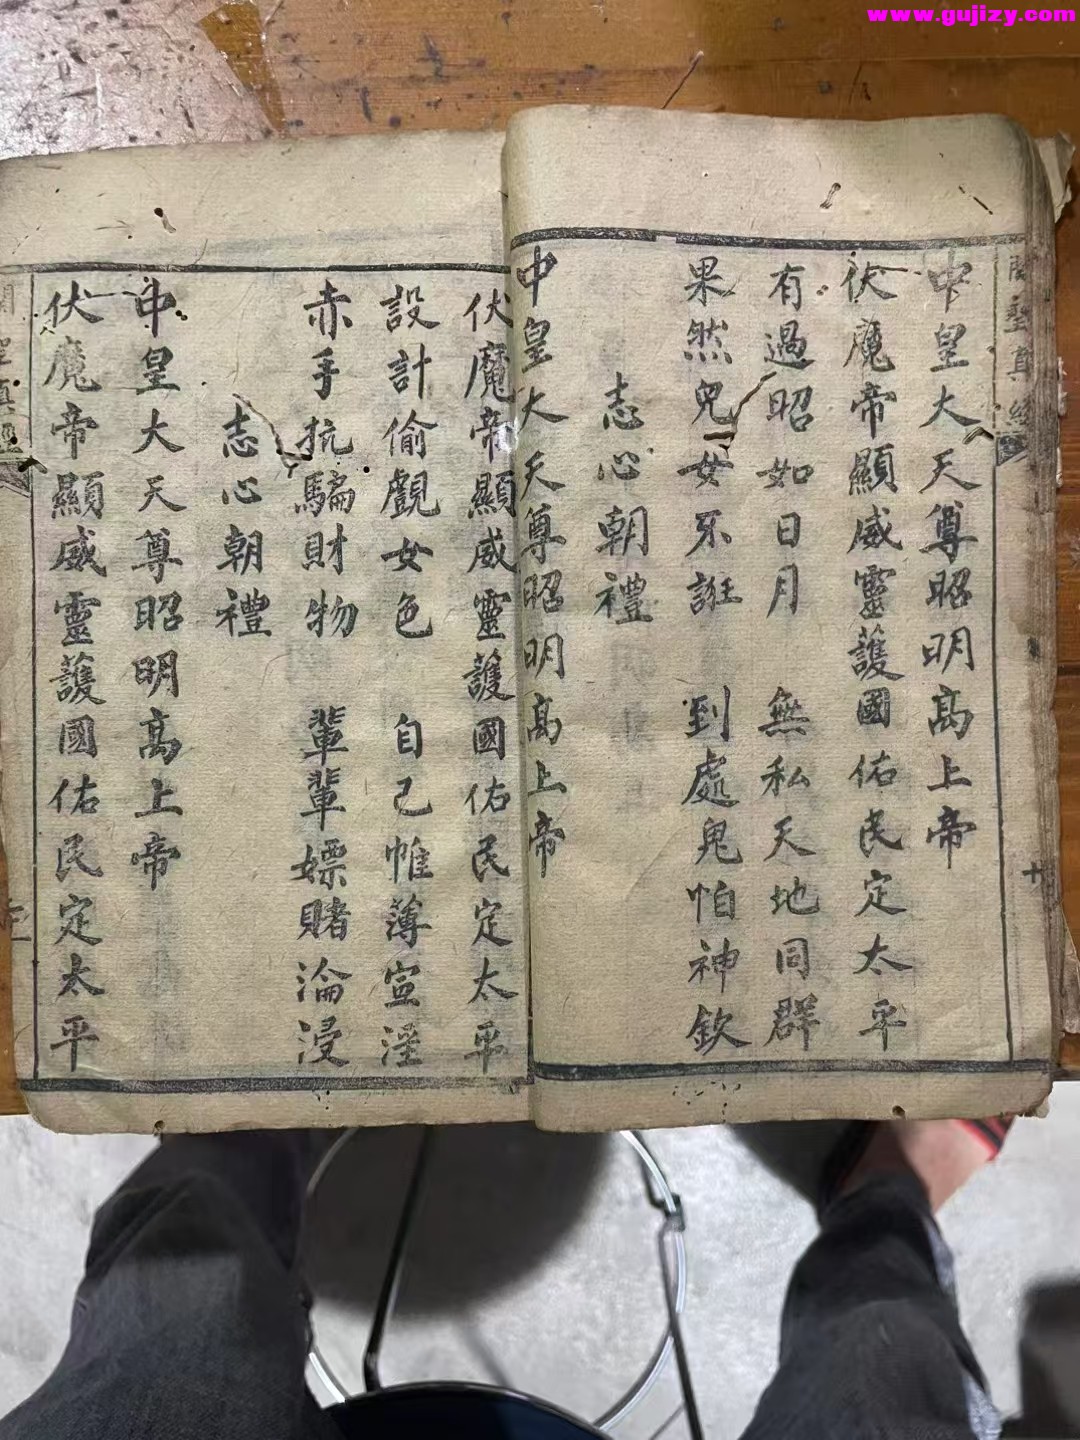 www.gujizy.com
聖真經
十
中皇大天尊昭明高上帝
伏魔帝顯威靈護國佑民定太平
有過昭如日月 無私天地同群
果然兒女不誑 到處鬼怕神欽
志心朝禮
中皇大天尊昭明高上帝
伏魔帝顯威靈護國佑民定太平
設計偷覷女色 自己帷薄宣淫
赤手抗騙財物 輩輩嫖賭淪浸
志心朝禮
中皇大天尊昭明高上帝
伏魔帝顯威靈護國佑民定太平
聖真經